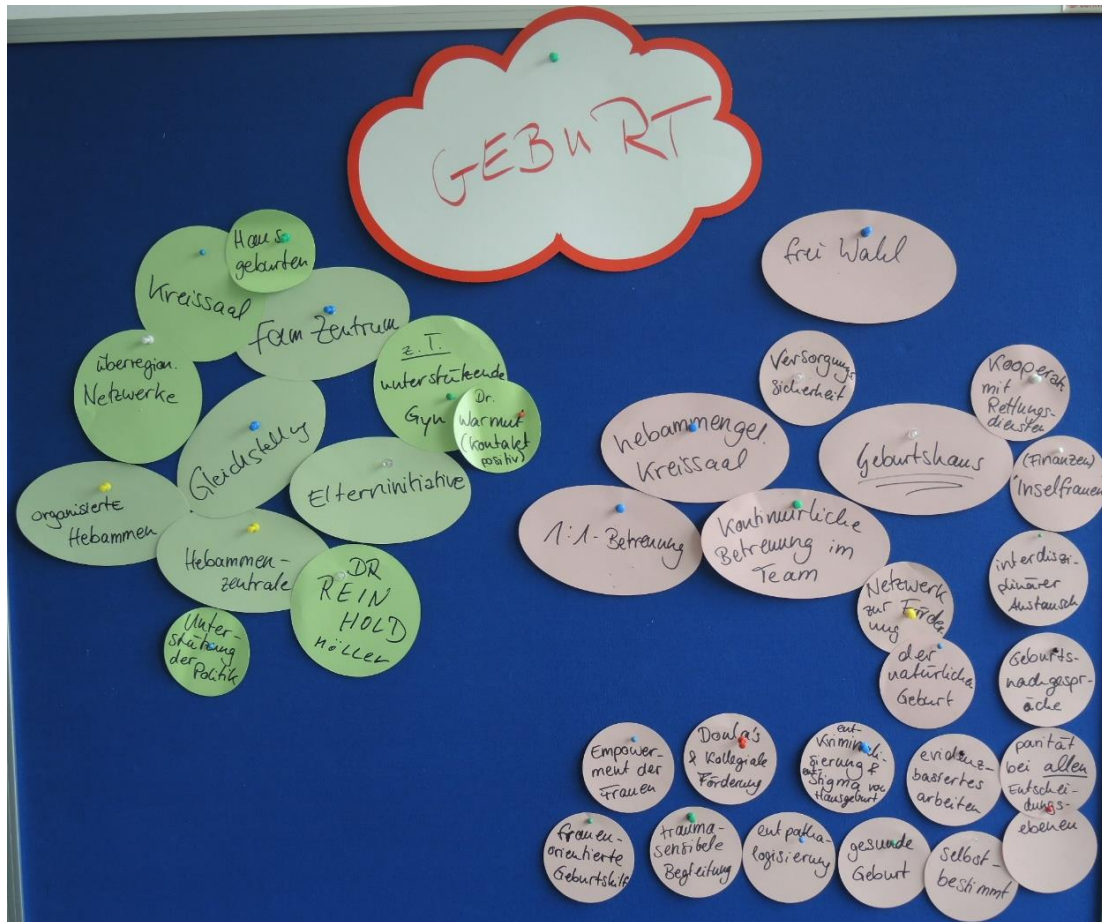 GEBURT
Haus
geburten
Kreissaal
Fam Zentrum
überregion.
Netzwerke
z.T.
unterstützende
Gyn
Dr.
Warmut
(Kontaket
positiv)
Gleichstellung
Elterninitiative
organisierte
Hebammen
Hebammen-
zentrale
DR
REIN
HOLD
nöller
Unter-
stützung
der
Politik
frei Wahl
Versorgungs
sicherheit
Kooperat.
mit
Rettungs-
diensten
hebammengel.
Kreissaal
Geburtshaus
(Finanzen)
Inselfrauen
1:1-Betreuung
Kontinuirliche
Betreuung im
Team
interdiszi-
plinärer
Austausch
Netzwerk
zur Förder
ung
der
natürlichen
Geburt
Geburts-
nachgespr-
äche
Empower-
ment der
Frauen
Doula's
& Kollegiale
Förderung
ent-
Kriminali-
sierung &
ent Stigma von
Hausgeburt
evidenz-
basiertes
arbeiten
parität
bei allen
Entschei-
dungs-
ebenen
frauen-
orientierte
Geburtshilfe
trauma-
sensibele
Begleitung
entpatha-
logisierung
gesunde
Geburt
selbst-
bestimmt